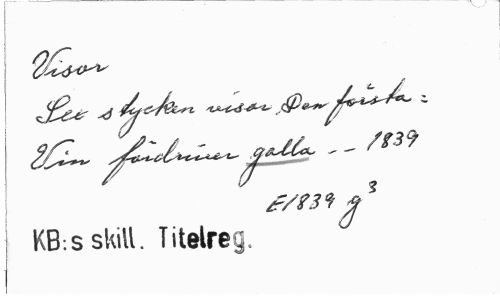 Visor
Sex stycken visor. Den första:
Vin fördriver galla -- 1839
E1839 g3
KB:s skill. Titelreg.